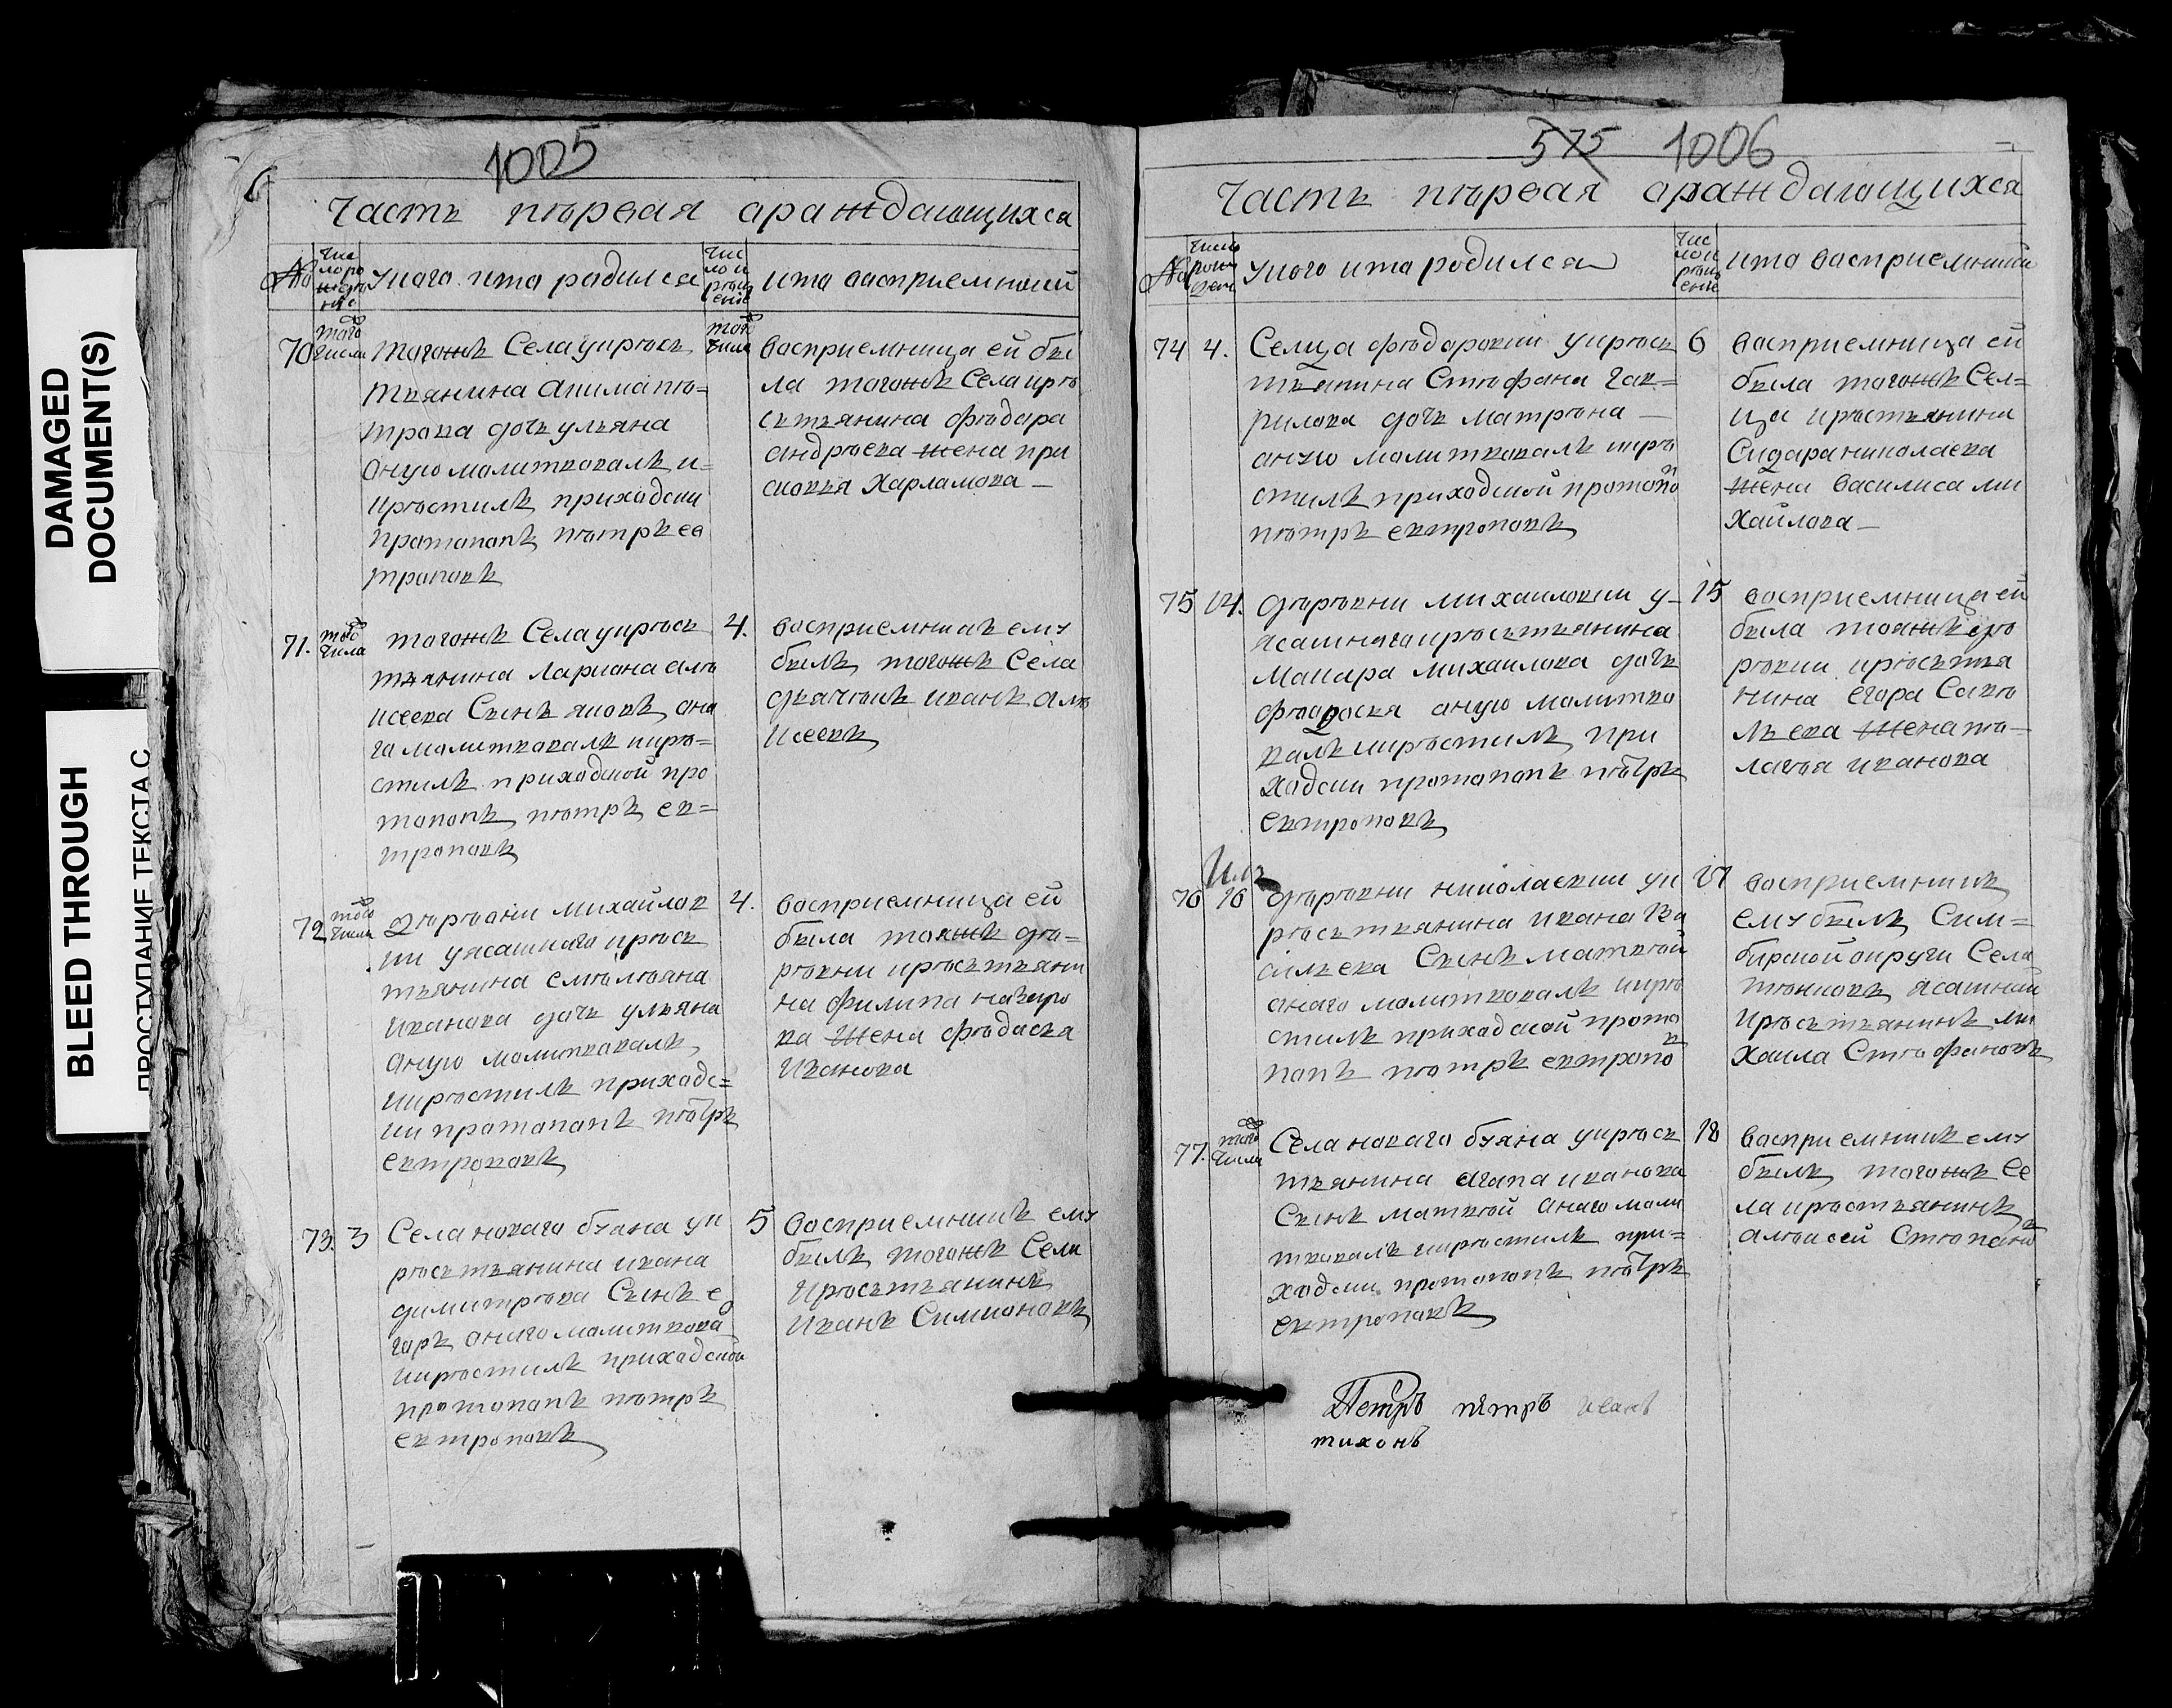 DAMAGED
DOCUMENT(S)
BLEED THROUGH
ПРОСТУПАНИЕ ТЕКСТА С
1005
Часть первая ораждающихса
№
Чис
ло ро
жде
ние
Укого кто радился
Чис
ло и
крещ
ение
кто васприемникй
70
того
числа
тогожъ Села укресть
тьянина Акима пе=
трова дочь ульяна
оную малитвовалъ и=
крестилъ приходски
протапапъ петръ ев
трапавъ
того
числа
васприемница ей бы
ла тогожъ Села кре
стьянина Федара
андреева жена пра
сковья Харламова —
71.
того
числа
тогожъ Села укресть
тьянина лариона але
ксеева Сынъ яковъ она
го малитвовалъ икре=
стилъ приходской про
тапапъ петръ ев=
трапавъ
4.
васприемникъ ему
былъ тогожъ Села
дьячекъ иванъ але
ксеевъ
72
того
числа
деревни михайлов
ки уясашнаго кресть
тьянина емельяна
иванова дочь ульяна
оную малитвовалъ
икрестилъ приходс=
ки протапапъ петръ
евтроповъ
4.
васприемница ей
была тояжъ де=
ревни крестьяни
на филипа назаро
ва жена федосья
Иванова
73.
3
Села новаго буяна ук
рестьянина ивана
димитрева Сынъ е
горъ онаго малиткова
икрестилъ приходской
протапапъ петръ
евтропавъ
5
васприемникъ ему
былъ тогожъ Села
Крестьянинъ
Иванъ Симионовъ
575 1006
Часть первая ораждающихся
№
Число
рож
дени
Укого кто родился
Чис
ло и
крещ
ение
кто васприемникй
74
4.
Сельца федоровки укресть
тьянина Стефана гав=
рилова дочь матрена —
оную малитвовалъ икре
стилъ приходской протопо
петръ евтроповъ
6
васприемница ей
была тогожъ Сел=
ца крестьянина
Сидара николаева
жена василиса ми
хайлова —
75
14.
деревни михаиловки у=
ясашнаго крестьянина
Макара михаилова дочь
федосья оную малитво
валъ икрестилъ при
ходски протапапъ петръ
евтроповъ
15
васприемница ей
была тояжъ де
ревни крестья
нина егора Саве
льева жена пе=
лагея иванова
76
16
деревни николаевки ук
рестьянина ивана ва
сильева Сынъ матвей
онаго малитвовалъ икре
стилъ приходской прота
папъ петръ евтропо
17
васприемникъ
ему былъ Сим=
бирской округи Села
тенковъ ясашной
Крестьянинъ ми
хаила Стефановъ
77.
того
числа
Села новаго буяна укресть
тьянина агапа иванова
Сынъ матвей онаго мали
твовалъ икрестилъ при=
ходски протапапъ петръ
евтропавъ
18
васприемникъ ему
былъ тогожъ Се
ла крестьянинъ
алексей Степано
Петръ петръ иванъ
тихонъ